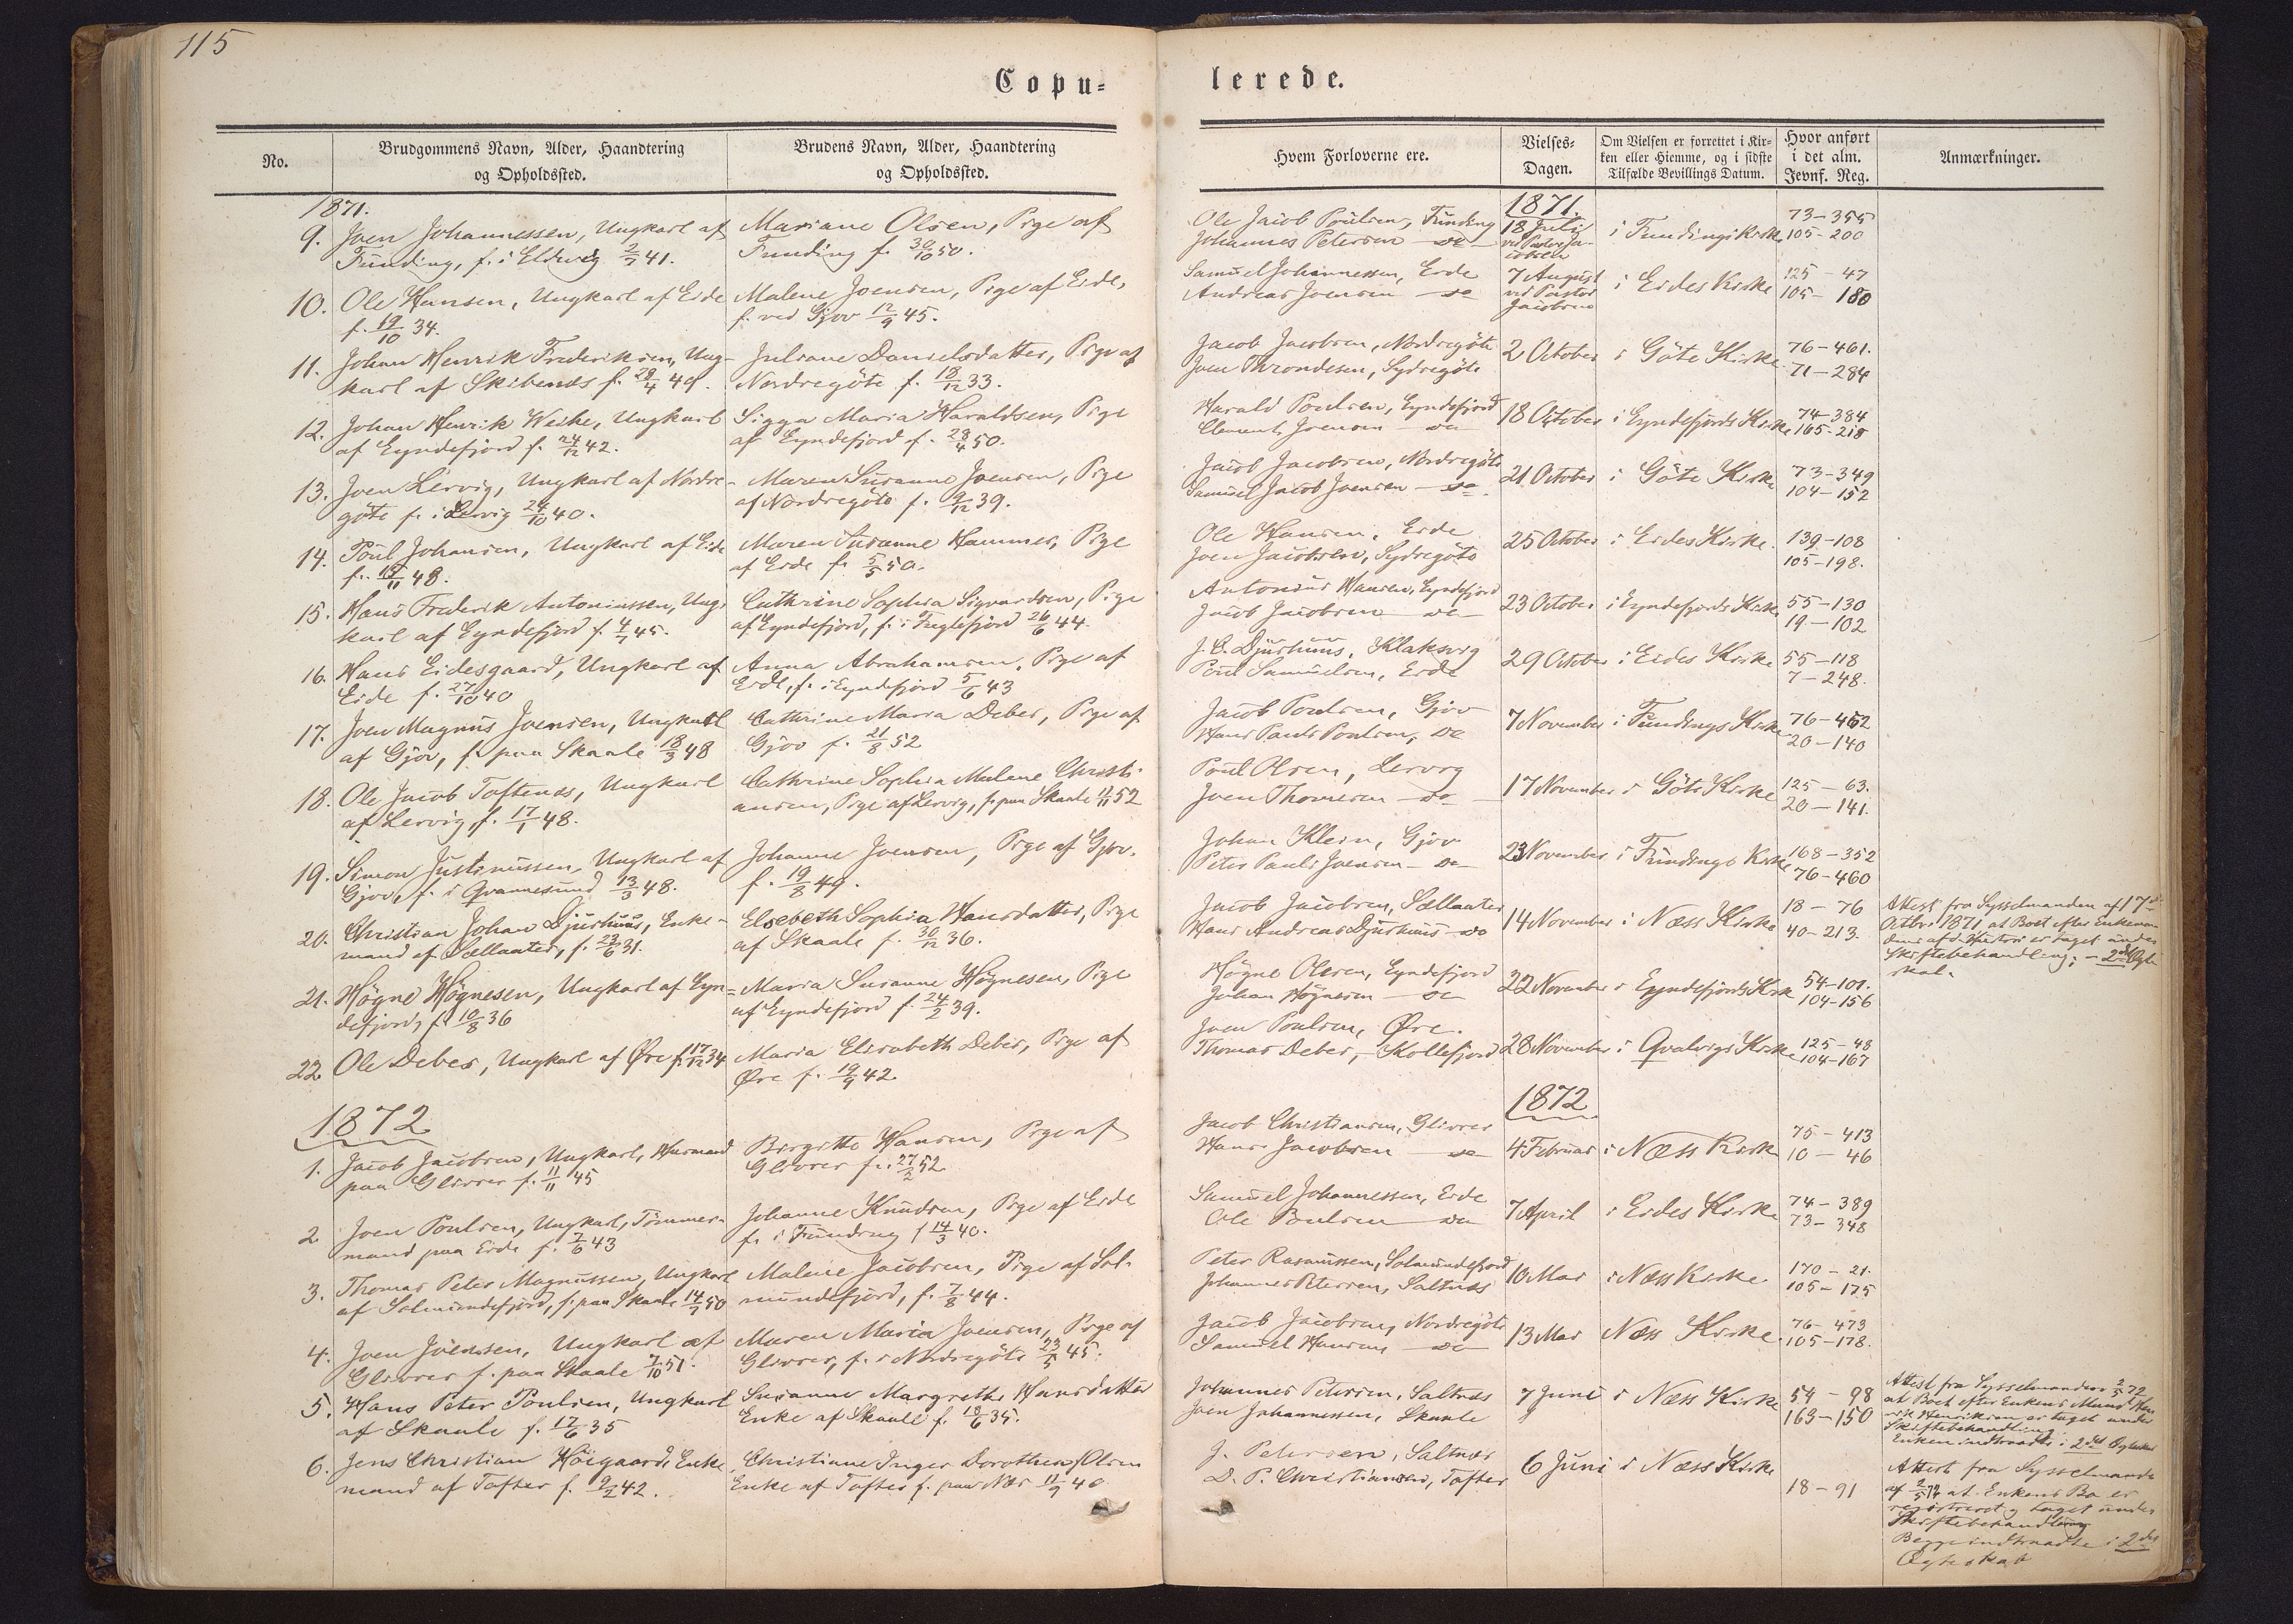 115
Copu=
lerede.
No.
Brudgommens Navn, Alder, Haandtering
og Opholdssted.
Brudens Navn, Alder, Haandtering
og Opholdssted.
Hvem Forloverne ere.
Vielses-
Dagen.
Om Vielsen er forrettet i Kir-
ken eller Hiemme, og i sidste
Tilfælde Bevillings Datum.
Hvor anført
i det alm.
Jevnf. Reg.
Anmærkninger.
1871.
9. Joen Johannessen, Ungkarl af
Funding, f. i Eldevig 2/7 41.
Mariane Olsen, Pige af
Funding f. 30/10 50.
10. Ole Hansen, Ungkarl af Eide
f. 19/10 34.
Malene Joensen, Pige af Eide,
f. ved Gjov 12/9 45.
11. Johan Henrik Frederiksen, Ung-
karl af Skibenæs f. 28/4 49.
Juliane Danielsdatter, Pige af
Nordregöte f. 18/12 33.
12. Johan Henrik Weihe, Ungkarl
af Eyndefjord f. 24/12 42.
Sigga Maria Haraldsen, Pige
af Eyndefjord f. 28/4 50.
13. Joen Lervig, Ungkarl af Nordre-
göte f. i Lervig 24/10 40.
Maren Susanne Joensen, Pige
af Nordregöte f. 9/12 39.
14. Poul Johansen, Ungkarl af Eide
f. 15/11 48.
Maren Susanne Hammer, Pige
af Eide f. 5/5 50.
15. Hans Frederik Antoniussen, Ung-
karl af Eyndefjord f. 4/7 45.
Cathrine Sophia Sigvardsen, Pige
af Eyndefjord, f. i Fuglefjord 26/6 44.
16. Hans Eidesgaard, Ungkarl af
Eide f. 27/10 40
Anna Abrahamsen, Pige af
Eide, f. i Eyndefjord 5/6 43
17. Joen Magnus Joensen, Ungkarl
af Gjov, f. paa Skaale 18/3 48
Cathrine Maria Debes, Pige af
Gjov f. 21/8 52
18. Ole Jacob Toftenæs, Ungkarl
af Lervig f. 17/1 48.
Cathrine Sophia Malene Christi-
ansen, Pige af Lervig, f. paa Skaale 12/11 52
19. Simon Justinussen, Ungkarl af
Gjov, f. i Qvannesund 13/3 48.
Johanne Joensen, Pige af Gjov.
f. 19/8 49.
20. Christian Johan Djurhuus, Enke-
mand af Sællaater, f. 23/6 31.
Elsebeth Sophia Hansdatter, Pige
af Skaale f. 30/12 36.
21. Høgne Høgnesen, Ungkarl af Eyn-
defjord, f. 10/8 36
Maria Susanne Høgnesen, Pige
af Eyndefjord f. 24/2 39.
22. Ole Debes, Ungkarl af Øre f. 17/12 34
Maria Elisabeth Debes, Pige af
Øre f. 19/9 42.
1872
1. Jacob Jacobsen, Ungkarl, Husmand
paa Glivrer f. 11/11 45
Birgitte Hansen, Pige af
Glivrer f. 27/2 52
2 Joen Poulsen, Ungkarl, Tømmer-
mand paa Eide f. 7/6 43
Johanne Knudsen, Pige af Eide
f. i Funding f 14/3 40.
3. Thomas Peter Magnussen, Ungkarl
af Solmundefjord, f. paa Skaale 14/7 50
Malene Jacobsen, Pige af Sol-
mundefjord, f. 7/8 44.
4. Joen Joensen, Ungkarl af
Glivrer f. paa Skaale 7/10 51.
Maren Maria Joensen, Pige af
Glivrer, f. i Nordregöte 23/5 45.
5. Hans Peter Poulsen, Ungkarl
af Skaale f. 17/6 35
Susanne Margrethe Hansdatter
Enke af Skaale f. 18/6 35.
6. Jens Christian Höigaard, Enke
mand af Tofter f. 9/2 42.
Christiane Inger Dorothea Olsen
Enke af Tofter f. paa Næs 11/9 40
1871.
Ole Jacob Poulsen, Funding
Johannes Petersen do
18 Juli
ved Pastor Ja-
cobsen
i Fundings Kirke
73-355
105-200
Samuel Johannessen, Eide
Andreas Joensen do
7 August
ved Pastor
Jacobsen
i Eides Kirke
125-47
105-180
Jacob Jacobsen, Nordregöte
Joen Throndesen, Sydregöte
2 October i Göte Kirke
76-461.
71-284
Harald Poulsen, Eyndefjord
Clement Joensen do
18 October i Eyndefjords Kirke
74-384
165-218
Jacob Jacobsen, Nordregöte
Samuel Jacob Joensen do
21 October i Göte Kirke
73-349
104-152
Ole Hansen, Eide
Joen Jacobsen, Sydregöte
25 October i Eides Kirke.
139-108
105-198.
Antonius Hansen, Eyndefjord
Jacob Jacobsen do
23 October i Eyndefjords Kirke
55-130
19-102
J. C. Djurhuus, Klaksvig
Poul Samuelsen, Eide
29 October i Eides Kirke
55-118
7-248.
Jacob Poulsen, Gjov
Hans Pauli Poulsen, do
7 November i Fundings Kirke
76-462
20-140
Poul Olsen, Lervig
Joen Thomesen do
17 November i Göte Kirke
125-63.
20-141.
Johan Klein, Gjov
Peter Pauli Joensen do
23 November i Fundings Kirke
168-352
76-460
Jacob Jacobsen, Sællaater
Hans Andreas Djurhuus do
14 November i Næss Kirke
18-76
40-213.
Attest fra Sysselmanden af 17de
Octbr. 1871, at Boet efter Enkeman-
dens afd. Hustru er taget under
Skiftebehandling. - 2det Ægte-
skab.
Høgne Olesen, Eyndefjord
Johan Høgnesen do
22 November i Eyndefjords Kirke
54-101.
104-156
Joen Poulsen, Øre.
Thomas Debes, Kollefjord
28 November i Qvalvigs Kirke
125-48
104-167
1872
Jacob Christiansen, Glivrer
Hans Jacobsen do
4 Februar i Næss Kirke
75-413
10-46
Samuel Johannessen, Eide
Ole Poulsen do
7 April i Eides Kirke
74-389
73-348
Peter Rasmussen, Solmundefjord
Johannes Petersen, Saltnæs
10 Mai i Næss Kirke
170-21.
105-175
Jacob Jacobsen, Nordregöte
Samuel Hansen do
13 Mai Næss Kirke
76-473
105-178.
Johannes Petersen, Saltnæs
Joen Johannessen, Skaale
7 Juni i Næss Kirke
54-98
163-150
Attest fra Sysselmanden 2/5 72
at Boet efter Enkens Mand Hen-
rik Henriksen er taget under
Skiftebehandling.
Enken indtraadte i 2det Ægteskab
J. Petersen, Saltnæs
D. P. Christiansen, Tofter
6 Juni i Næss Kirke
18-91
Attest fra Sysselmand
af 2/5 72 at Enkens Bo er
registreret og taget under
Skiftebehandling
Begge indtraadte i 2det
Ægteskab